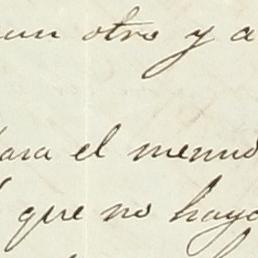 un otro y a
para el menud
que no haya